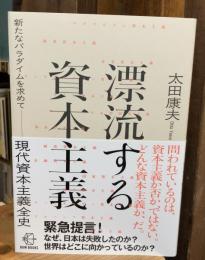 漂流する
資本主義
新たなパラダイムを求めて
太田康夫
Ota Yasuo
問われているのは、
資本主義か否かではない。
どんな資本主義か、だ。
現代資本主義全史
緊急提言！
なぜ、日本は失敗したのか？
世界はどこに向かっているのか？